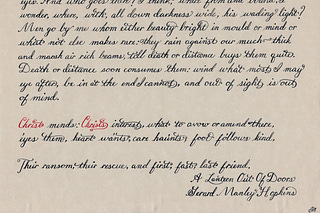 eyes. And who goes there? I think; where from and bound, I
wonder, where, with, all down darkness wide, his wading light?
Men go by me whom either beauty bright in mould or mind or
what not else makes rare: they rain against our much-thick
and marsh air rich beams, till death or distance buys them quite.
Death or distance soon consumes them: wind what most I may
eye after, be in at the end I cannot, and out of sight is out
of mind.
Christ minds: Christ's interest, what to avow or amend there,
eyes them, heart wants, care haunts, foot follows kind,
Their ransom, their rescue, and first, fast, last friend.
A Lantern Out Of Doors
Gerard Manley Hopkins